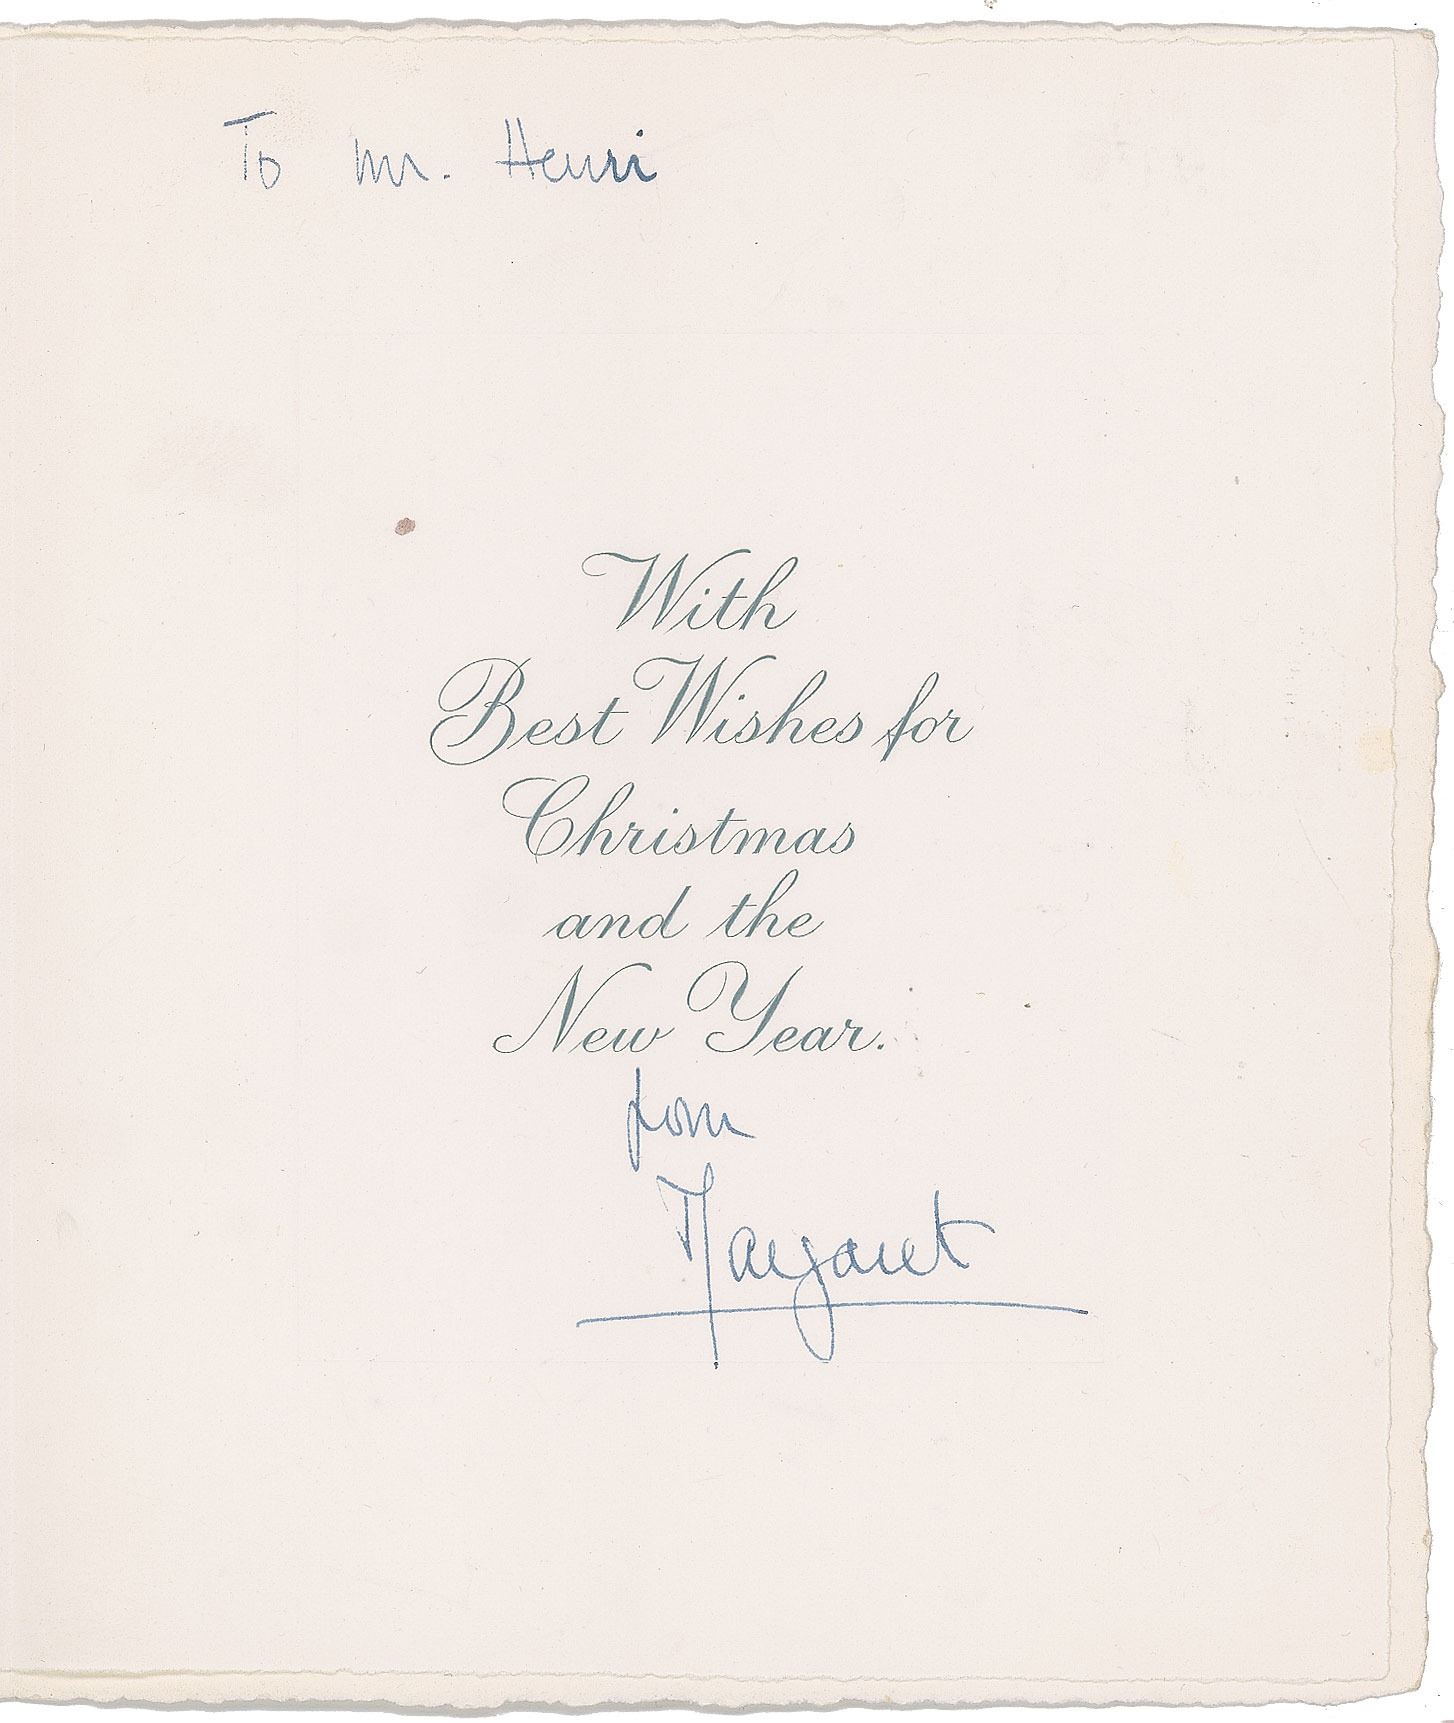 To Mr. Henri
With
Best Wishes for
Christmas
and the
New Year.
from
Margaret